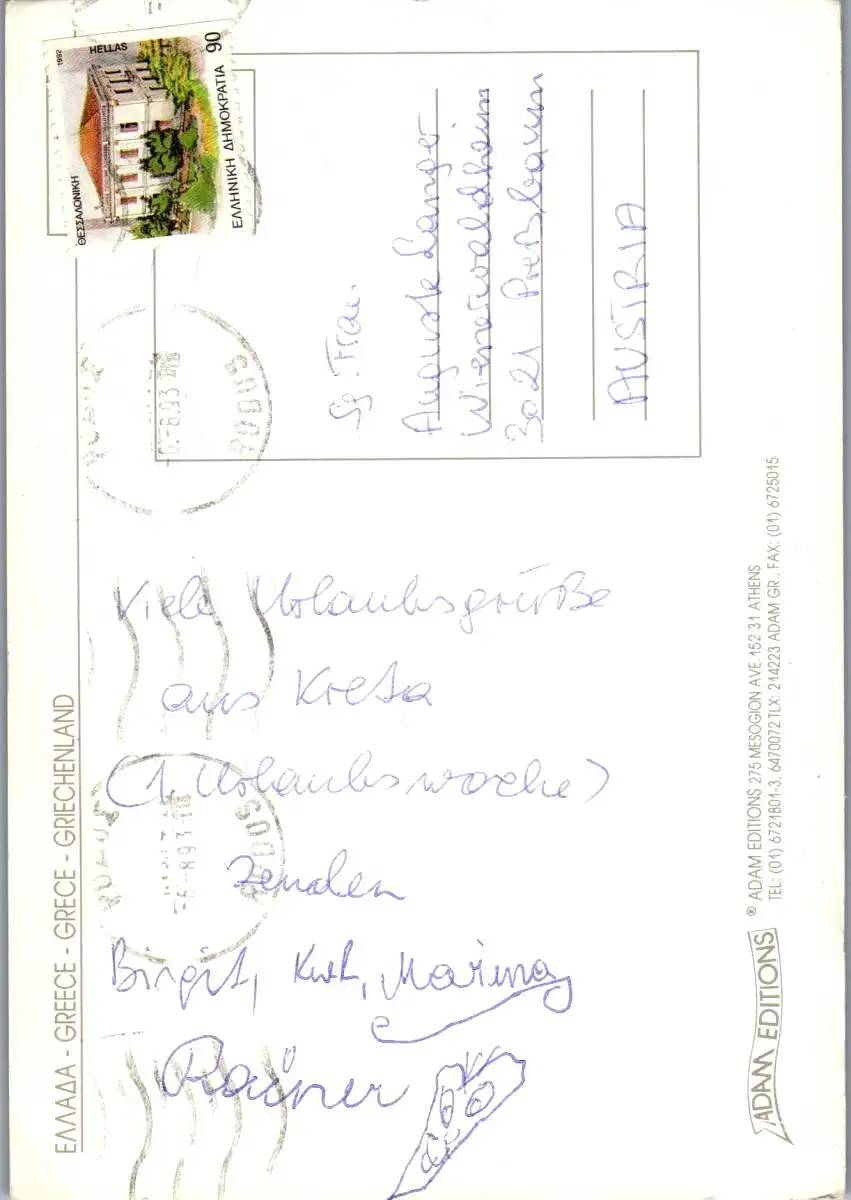 ΕΛΛΑΔΑ - GREECE - GRECE - GRIECHENLAND
Viele Urlaubsgrüße
aus Kreta
(1. Urlaubswoche)
Birgit, Kurt, Marina
Rainer
1992
HELLAS
90
ΘΕΣΣΑΛΟΝΙΚΗ
ΕΛΛΗΝΙΚΗ ΔΗΜΟΚΡΑΤΙΑ
RODOS
-6-8.93
RODOS
-6-8.93
Sg. Frau
Auguste Langer
Wienerwaldheim
3021 Preßbaum
AUSTRIA
ADAM EDITIONS
® ADAM EDITIONS 275 MESOGION AVE 152 31 ATHENS
TEL: (01) 6721801-3, 6470072 TLX: 214223 ADAM GR., FAX: (01) 6725015